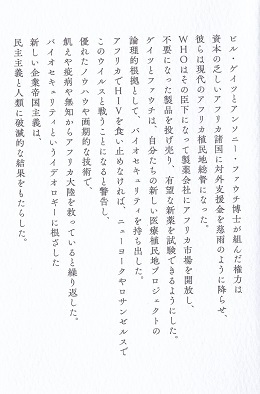 ビル・ゲイツとアンソニー・ファウチ博士が組んだ権力は
資本の乏しいアフリカ諸国に対外支援金を慈雨のように降らせ、
彼らは現代のアフリカ植民地総督になった。
WHOはその臣下になって製薬会社にアフリカ市場を開放し、
不要になった製品を投げ売り、有望な新薬を試験できるようにした。
ゲイツとファウチは、自分たちの新しい医療植民地プロジェクトの
論理的根拠として、バイオセキュリティを持ち出した。
アフリカでHIVを食い止めなければ、ニューヨークやロサンゼルスで
このウイルスと戦うことになると警告し、
優れたノウハウや画期的な技術で、
飢えや疫病や無知からアフリカ大陸を救っていると繰り返した。
バイオセキュリティというイデオロギーに根ざした
新しい企業帝国主義は、
民主主義と人類に破滅的な結果をもたらした。